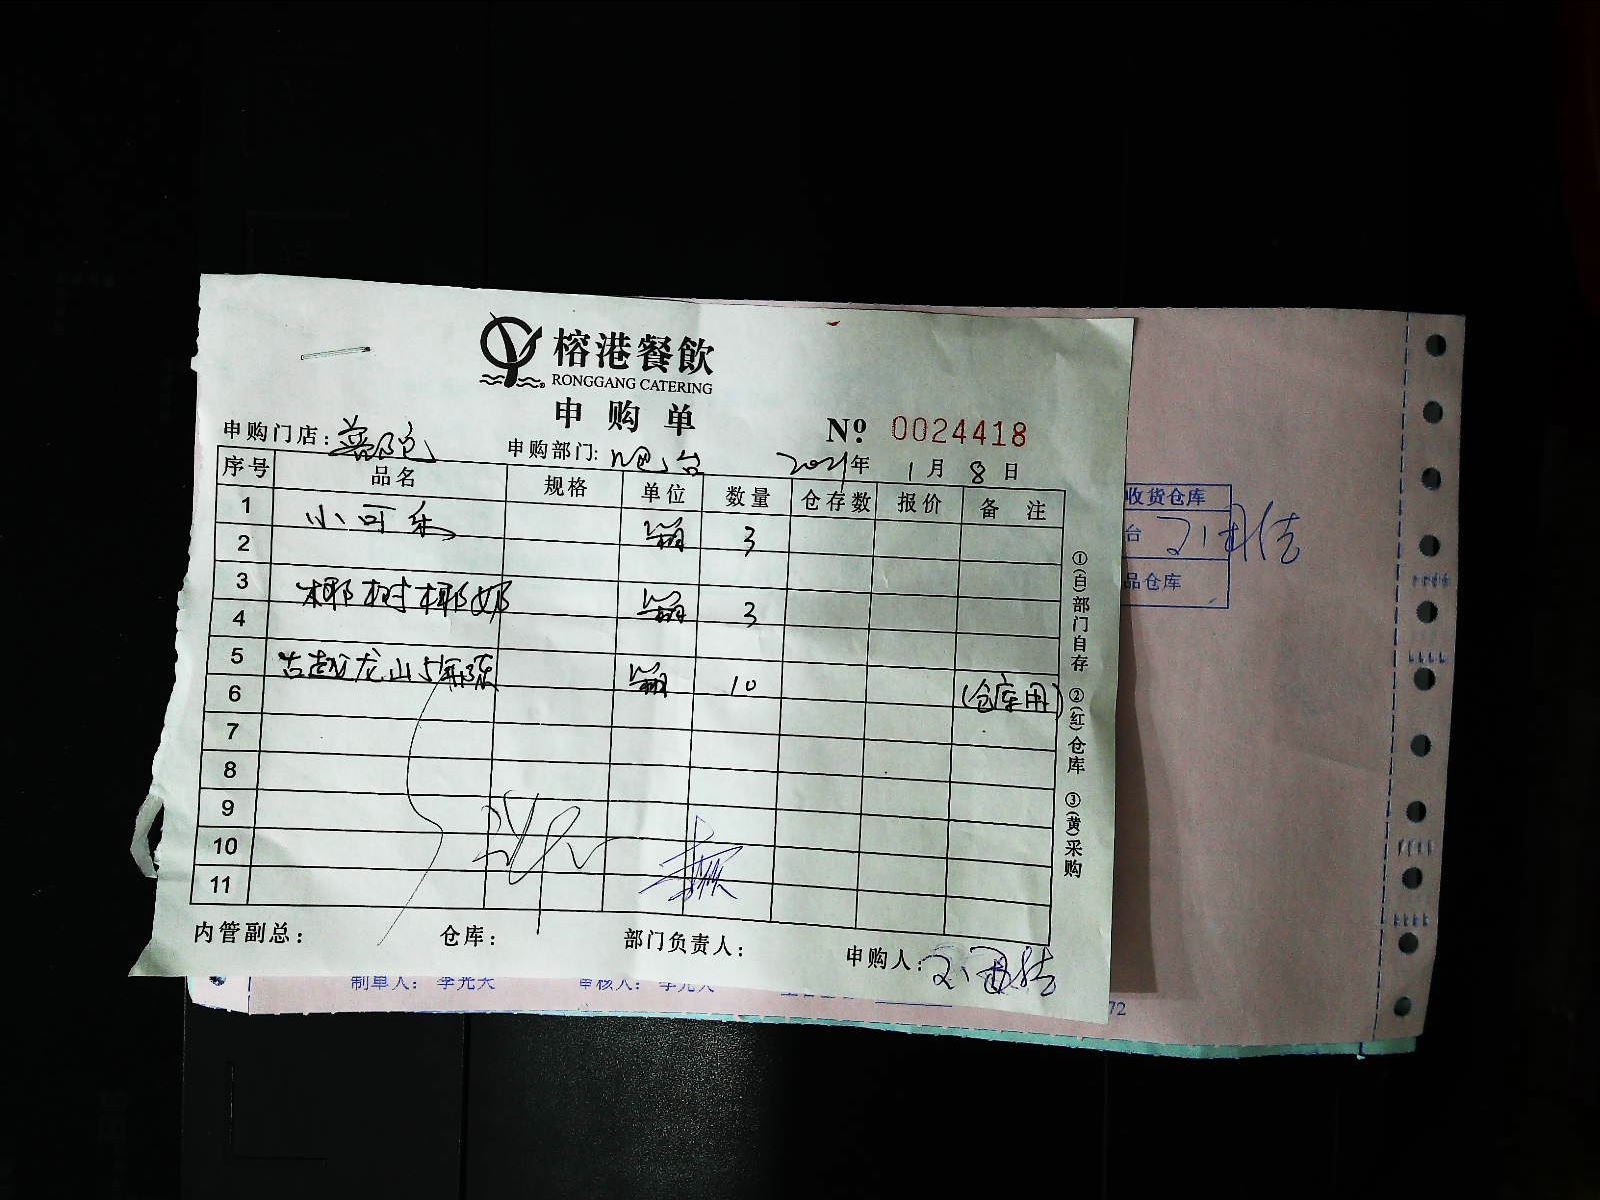 榕港餐飲
RONGGANG CATERING
申购单
Nº 0024418
申购门店: 普陀 申购部门: 吧台 2021年 1月 8日
序号 品名 规格 单位 数量 仓存数 报价 备注
1 小可乐 箱 3
2
3 椰树椰奶 箱 3
4
5 古越龙山5年陈 箱 10 (仓库用)
6
7
8
9
10
11
内管副总: 仓库: 部门负责人: 申购人:
①(白)部门自存 ②(红)仓库 ③(黄)采购
收货仓库
台
品仓库
制单人: 审核人:
72